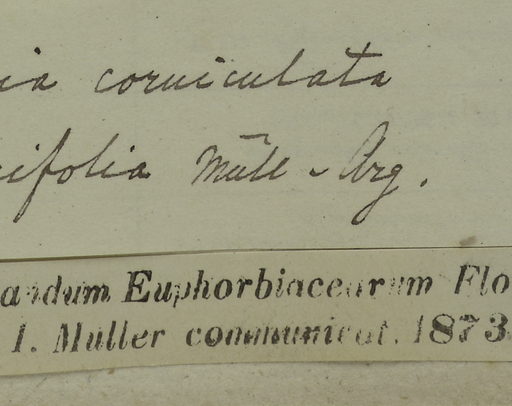 ia corniculata
ifolia Müll-Arg.
andum Euphorbiacearum Flo
I. Muller communicat. 1873